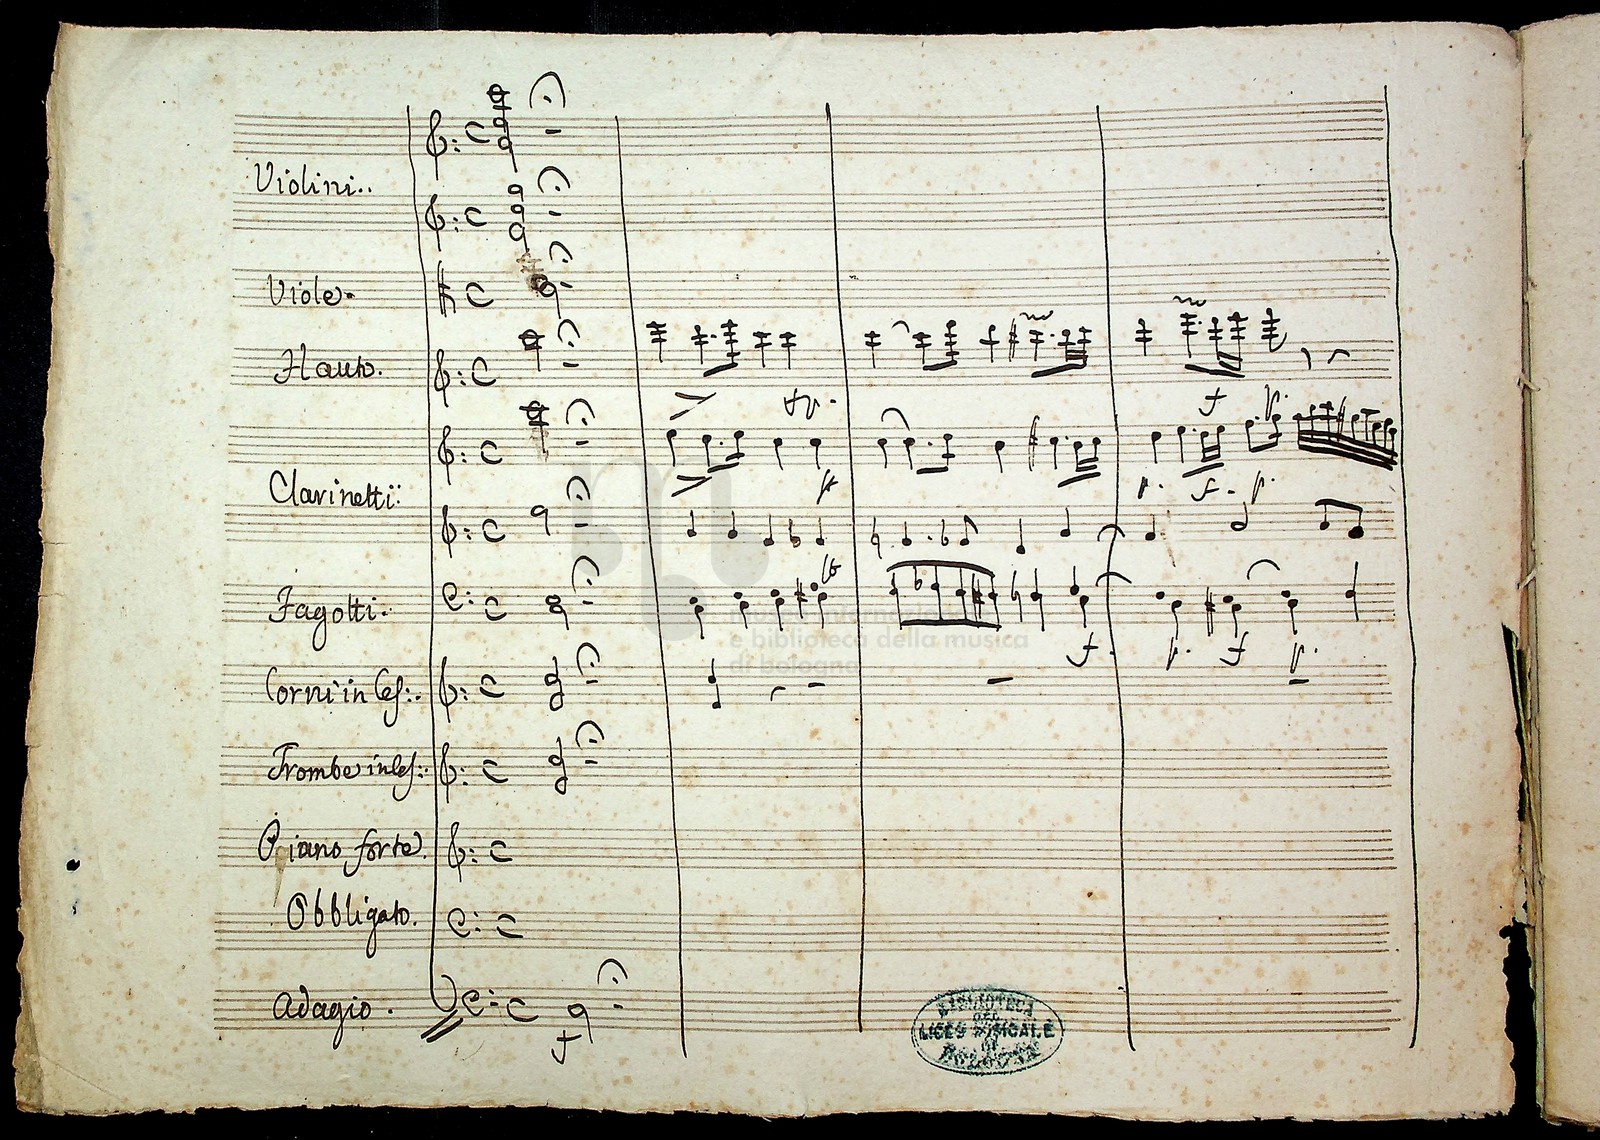 Violini..
Viole.
Flauto.
Clarinetti:
museo internazionale
e biblioteca della musica
di bologna
Fagotti.
Corni in
Trombe
Piano forte.
Obbligato.
Adagio.
BIBLIOTECA
DEL
LICEO MUSICALE
DI
BOLOGNA